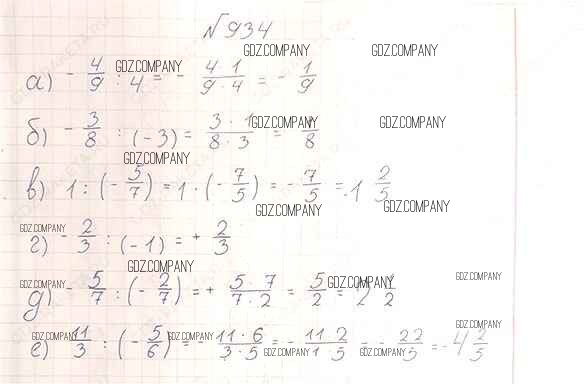 №934
GDZ.COMPANY GDZ.COMPANY
а) - 4/9 : 4 = - 4·1/9·4 = - 1/9
GDZ.COMPANY
б) - 3/8 : (-3) = 3·1/8·3 = 1/8
GDZ.COMPANY GDZ.COMPANY
GDZ.COMPANY
в) 1 : (- 5/7) = 1 · (- 7/5) = - 7/5 = -1 2/5
GDZ.COMPANY GDZ.COMPANY
г) - 2/3 : (-1) = + 2/3
GDZ.COMPANY
GDZ.COMPANY GDZ.COMPANY
д) - 5/7 : (- 2/7) = + 5·7/7·2 = 5/2 = 2 1/2
GDZ.COMPANY GDZ.COMPANY
GDZ.COMPANY
е) 11/3 : (- 5/6) = - 11·6/3·5 = - 11 2/1 5 = - 22/5 = -4 2/5
GDZ.COMPANY GDZ.COMPANY GDZ.COMPANY GDZ.COMPANY